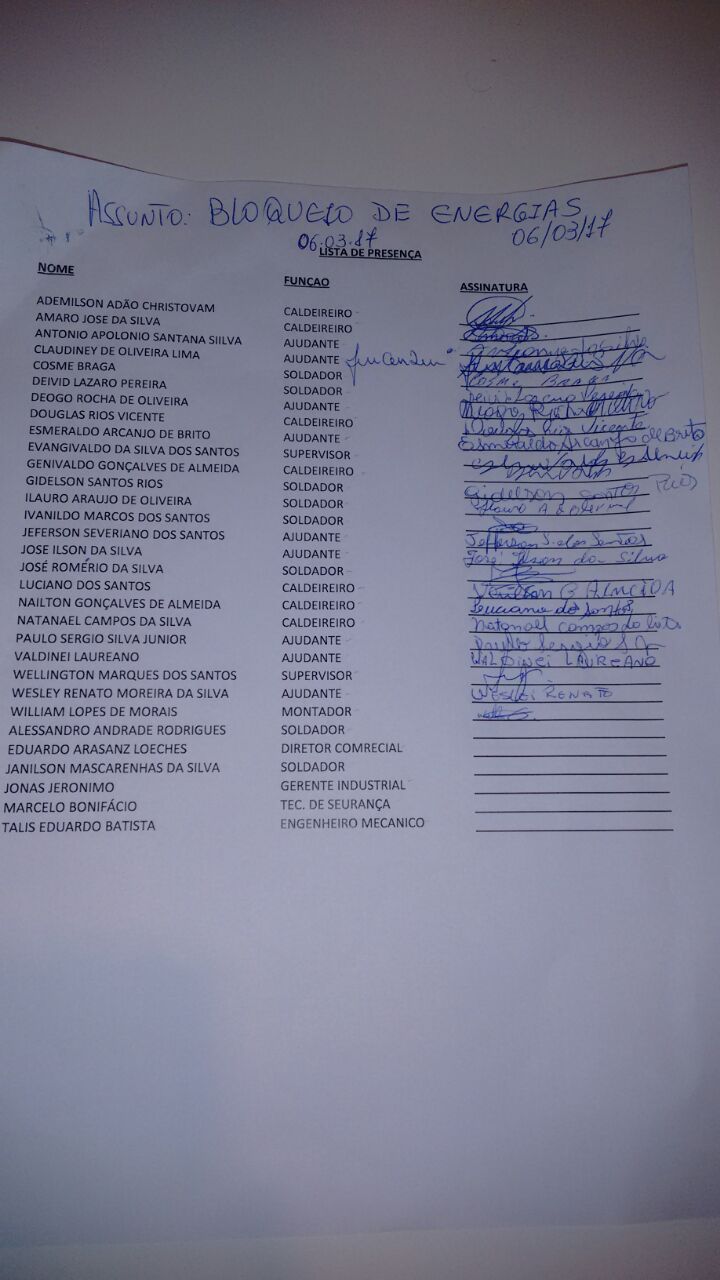 ASSUNTO: BLOQUEIO DE ENERGIAS
06.03.17 06/03/17
LISTA DE PRESENÇA
NOME FUNÇAO ASSINATURA
ADEMILSON ADÃO CHRISTOVAM CALDEIREIRO
AMARO JOSE DA SILVA CALDEIREIRO
ANTONIO APOLONIO SANTANA SIILVA AJUDANTE
CLAUDINEY DE OLIVEIRA LIMA AJUDANTE
COSME BRAGA SOLDADOR COSME BRAGA
DEIVID LAZARO PEREIRA SOLDADOR
DEOGO ROCHA DE OLIVEIRA AJUDANTE
DOUGLAS RIOS VICENTE CALDEIREIRO Vicente
ESMERALDO ARCANJO DE BRITO AJUDANTE Esmeraldo Arcanjo de Brito
EVANGIVALDO DA SILVA DOS SANTOS SUPERVISOR
GENIVALDO GONÇALVES DE ALMEIDA CALDEIREIRO
GIDELSON SANTOS RIOS SOLDADOR Gidelson Santos Rios
ILAURO ARAUJO DE OLIVEIRA SOLDADOR
IVANILDO MARCOS DOS SANTOS SOLDADOR
JEFERSON SEVERIANO DOS SANTOS AJUDANTE Jefferson S. dos Santos
JOSE ILSON DA SILVA AJUDANTE José Ilson da Silva
JOSÉ ROMÉRIO DA SILVA SOLDADOR
LUCIANO DOS SANTOS CALDEIREIRO
NAILTON GONÇALVES DE ALMEIDA CALDEIREIRO Luciano dos Santos
NATANAEL CAMPOS DA SILVA CALDEIREIRO Natanael campos da
PAULO SERGIO SILVA JUNIOR AJUDANTE Paulo Sergio S
VALDINEI LAUREANO AJUDANTE VALDINEI LAUREANO
WELLINGTON MARQUES DOS SANTOS SUPERVISOR
WESLEY RENATO MOREIRA DA SILVA AJUDANTE WESLEI RENATO
WILLIAM LOPES DE MORAIS MONTADOR
ALESSANDRO ANDRADE RODRIGUES SOLDADOR
EDUARDO ARASANZ LOECHES DIRETOR COMRECIAL
JANILSON MASCARENHAS DA SILVA SOLDADOR
JONAS JERONIMO GERENTE INDUSTRIAL
MARCELO BONIFÁCIO TEC. DE SEURANÇA
TALIS EDUARDO BATISTA ENGENHEIRO MECANICO